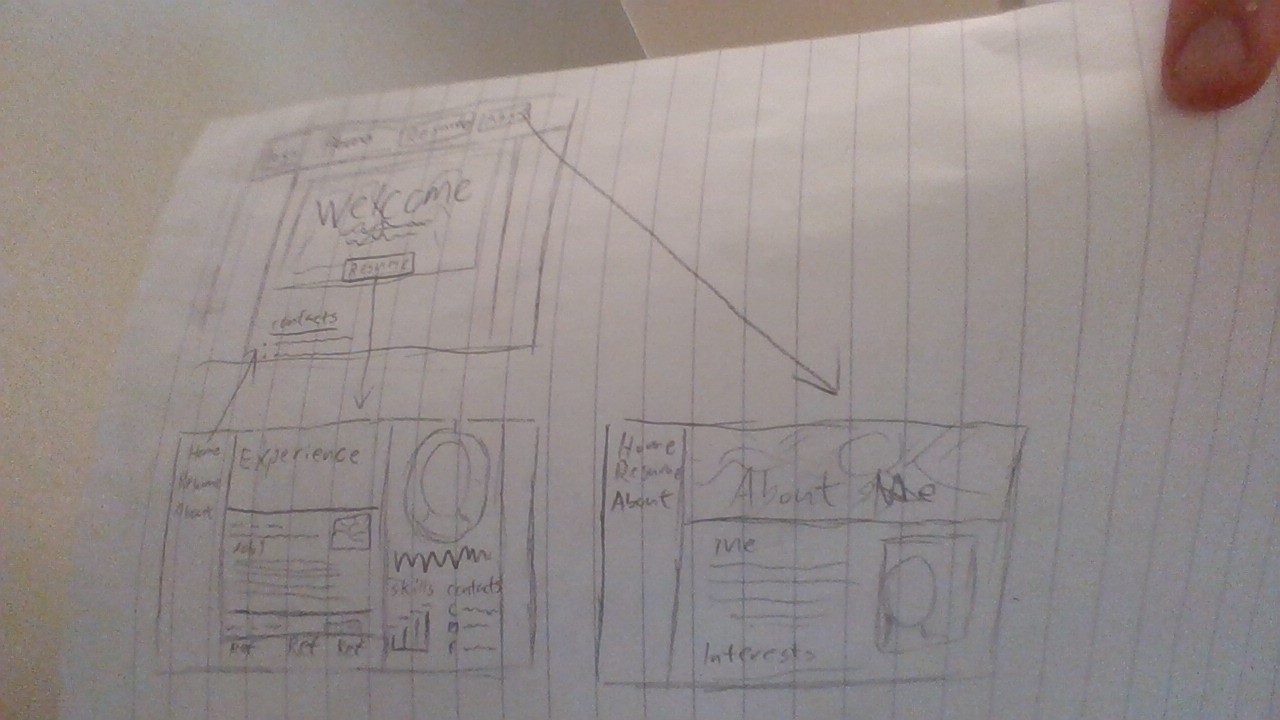 Home Resume
Welcome
Resume
contacts
Home
Resume
About
Experience
Job 1
Ref Ref Ref
skills contacts
Home
Resume
About
About Me
Me
Interests